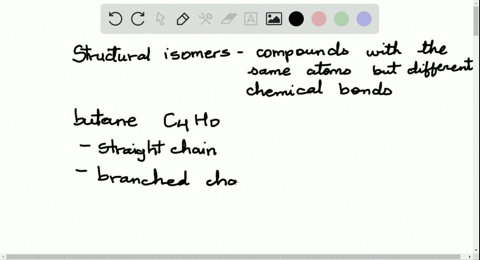 Structural isomers - compounds with the
same atoms but different
chemical bonds
butane C4H10
- straight chain
- branched cha